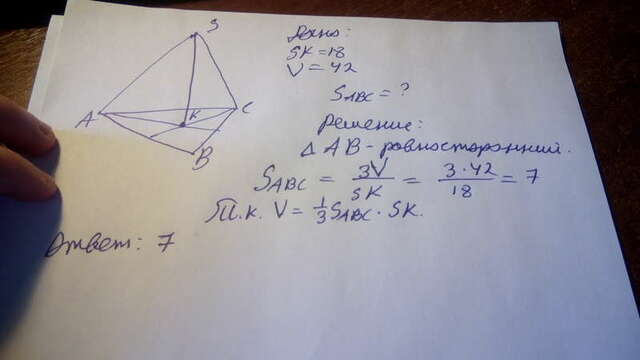 S
A
K
C
B
Дано:
SK = 18
V = 42
SABC = ?
Решение:
Δ AB - равносторонний.
SABC = 3V/SK = 3·42/18 = 7
Т.к. V = 1/3 SABC · SK.
Ответ: 7